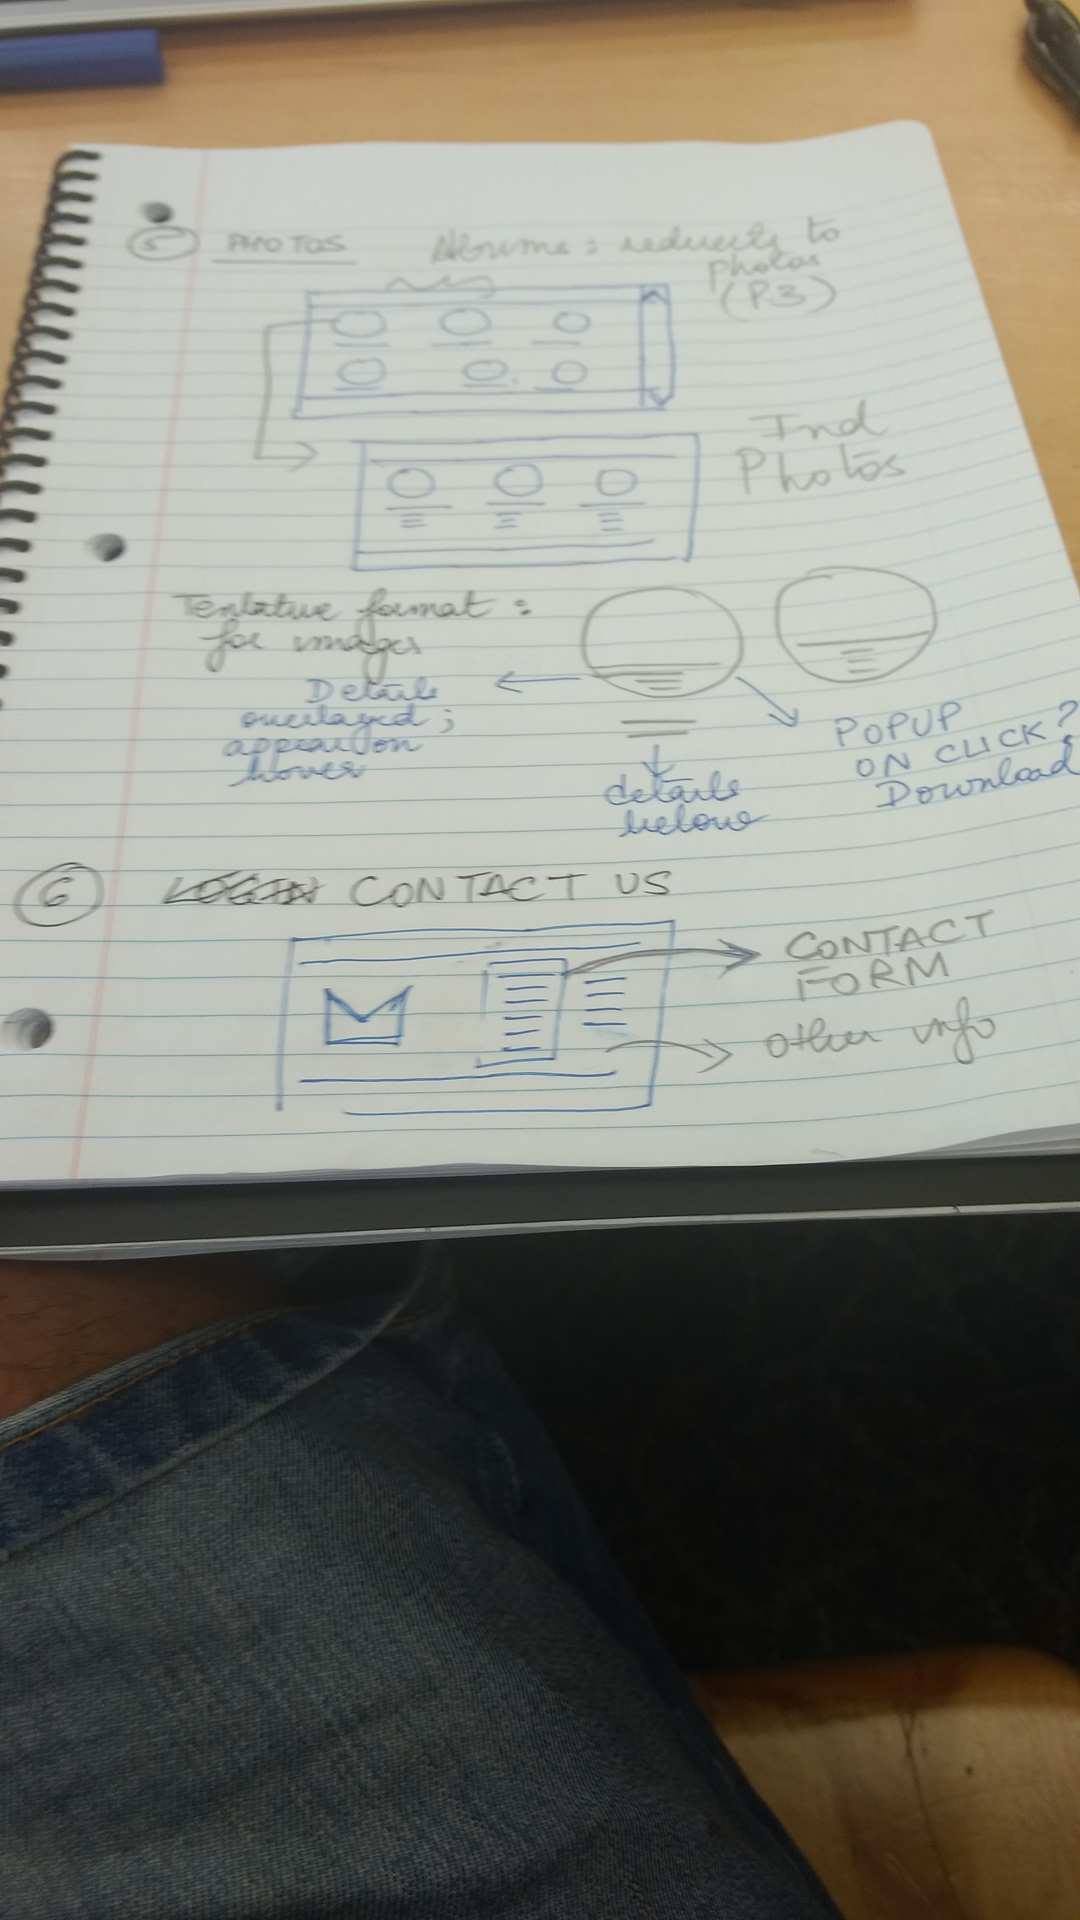 5 PHOTOS
Albums : redirects to
photos
(P.3)
Ind
Photos
Tentative format :
for images
Details
overlayed ;
appear on
hover
details
below
POPUP
ON CLICK?
Download
6 CONTACT US
CONTACT
FORM
other info